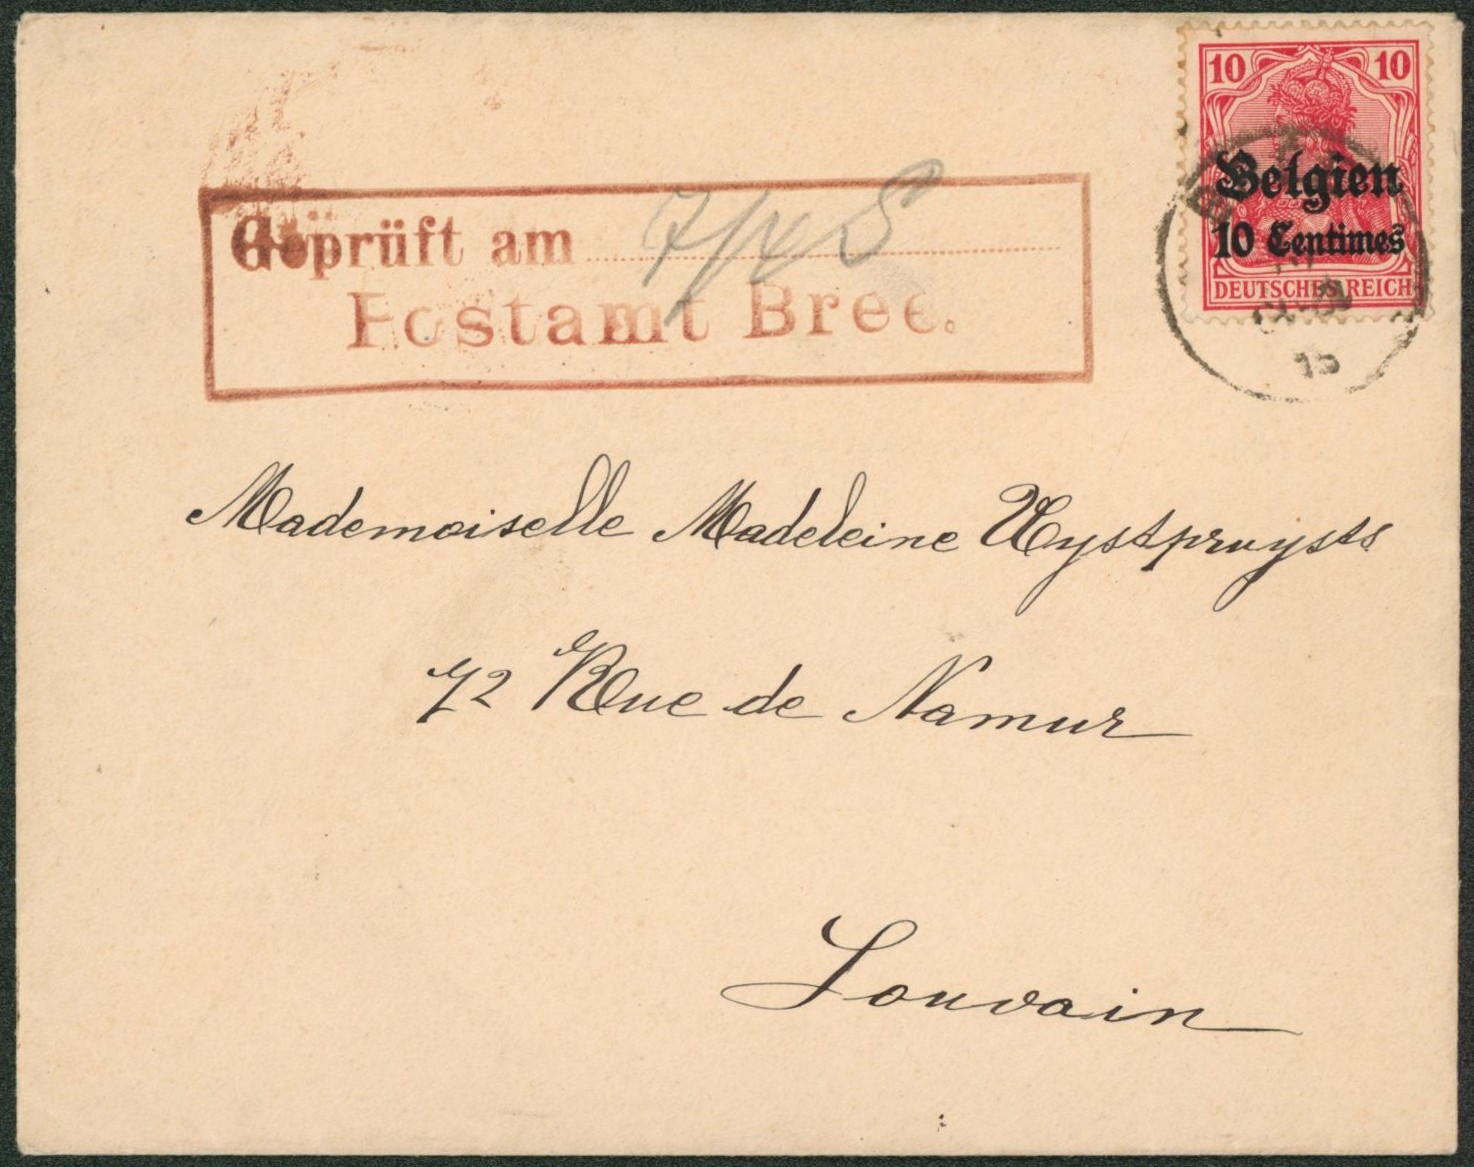 10 10
Belgien
10 Centimes
DEUTSCHES REICH
15
Geprüft am
Postamt Bree.
Mademoiselle Madeleine Uystpruysts
72 Rue de Namur
Louvain